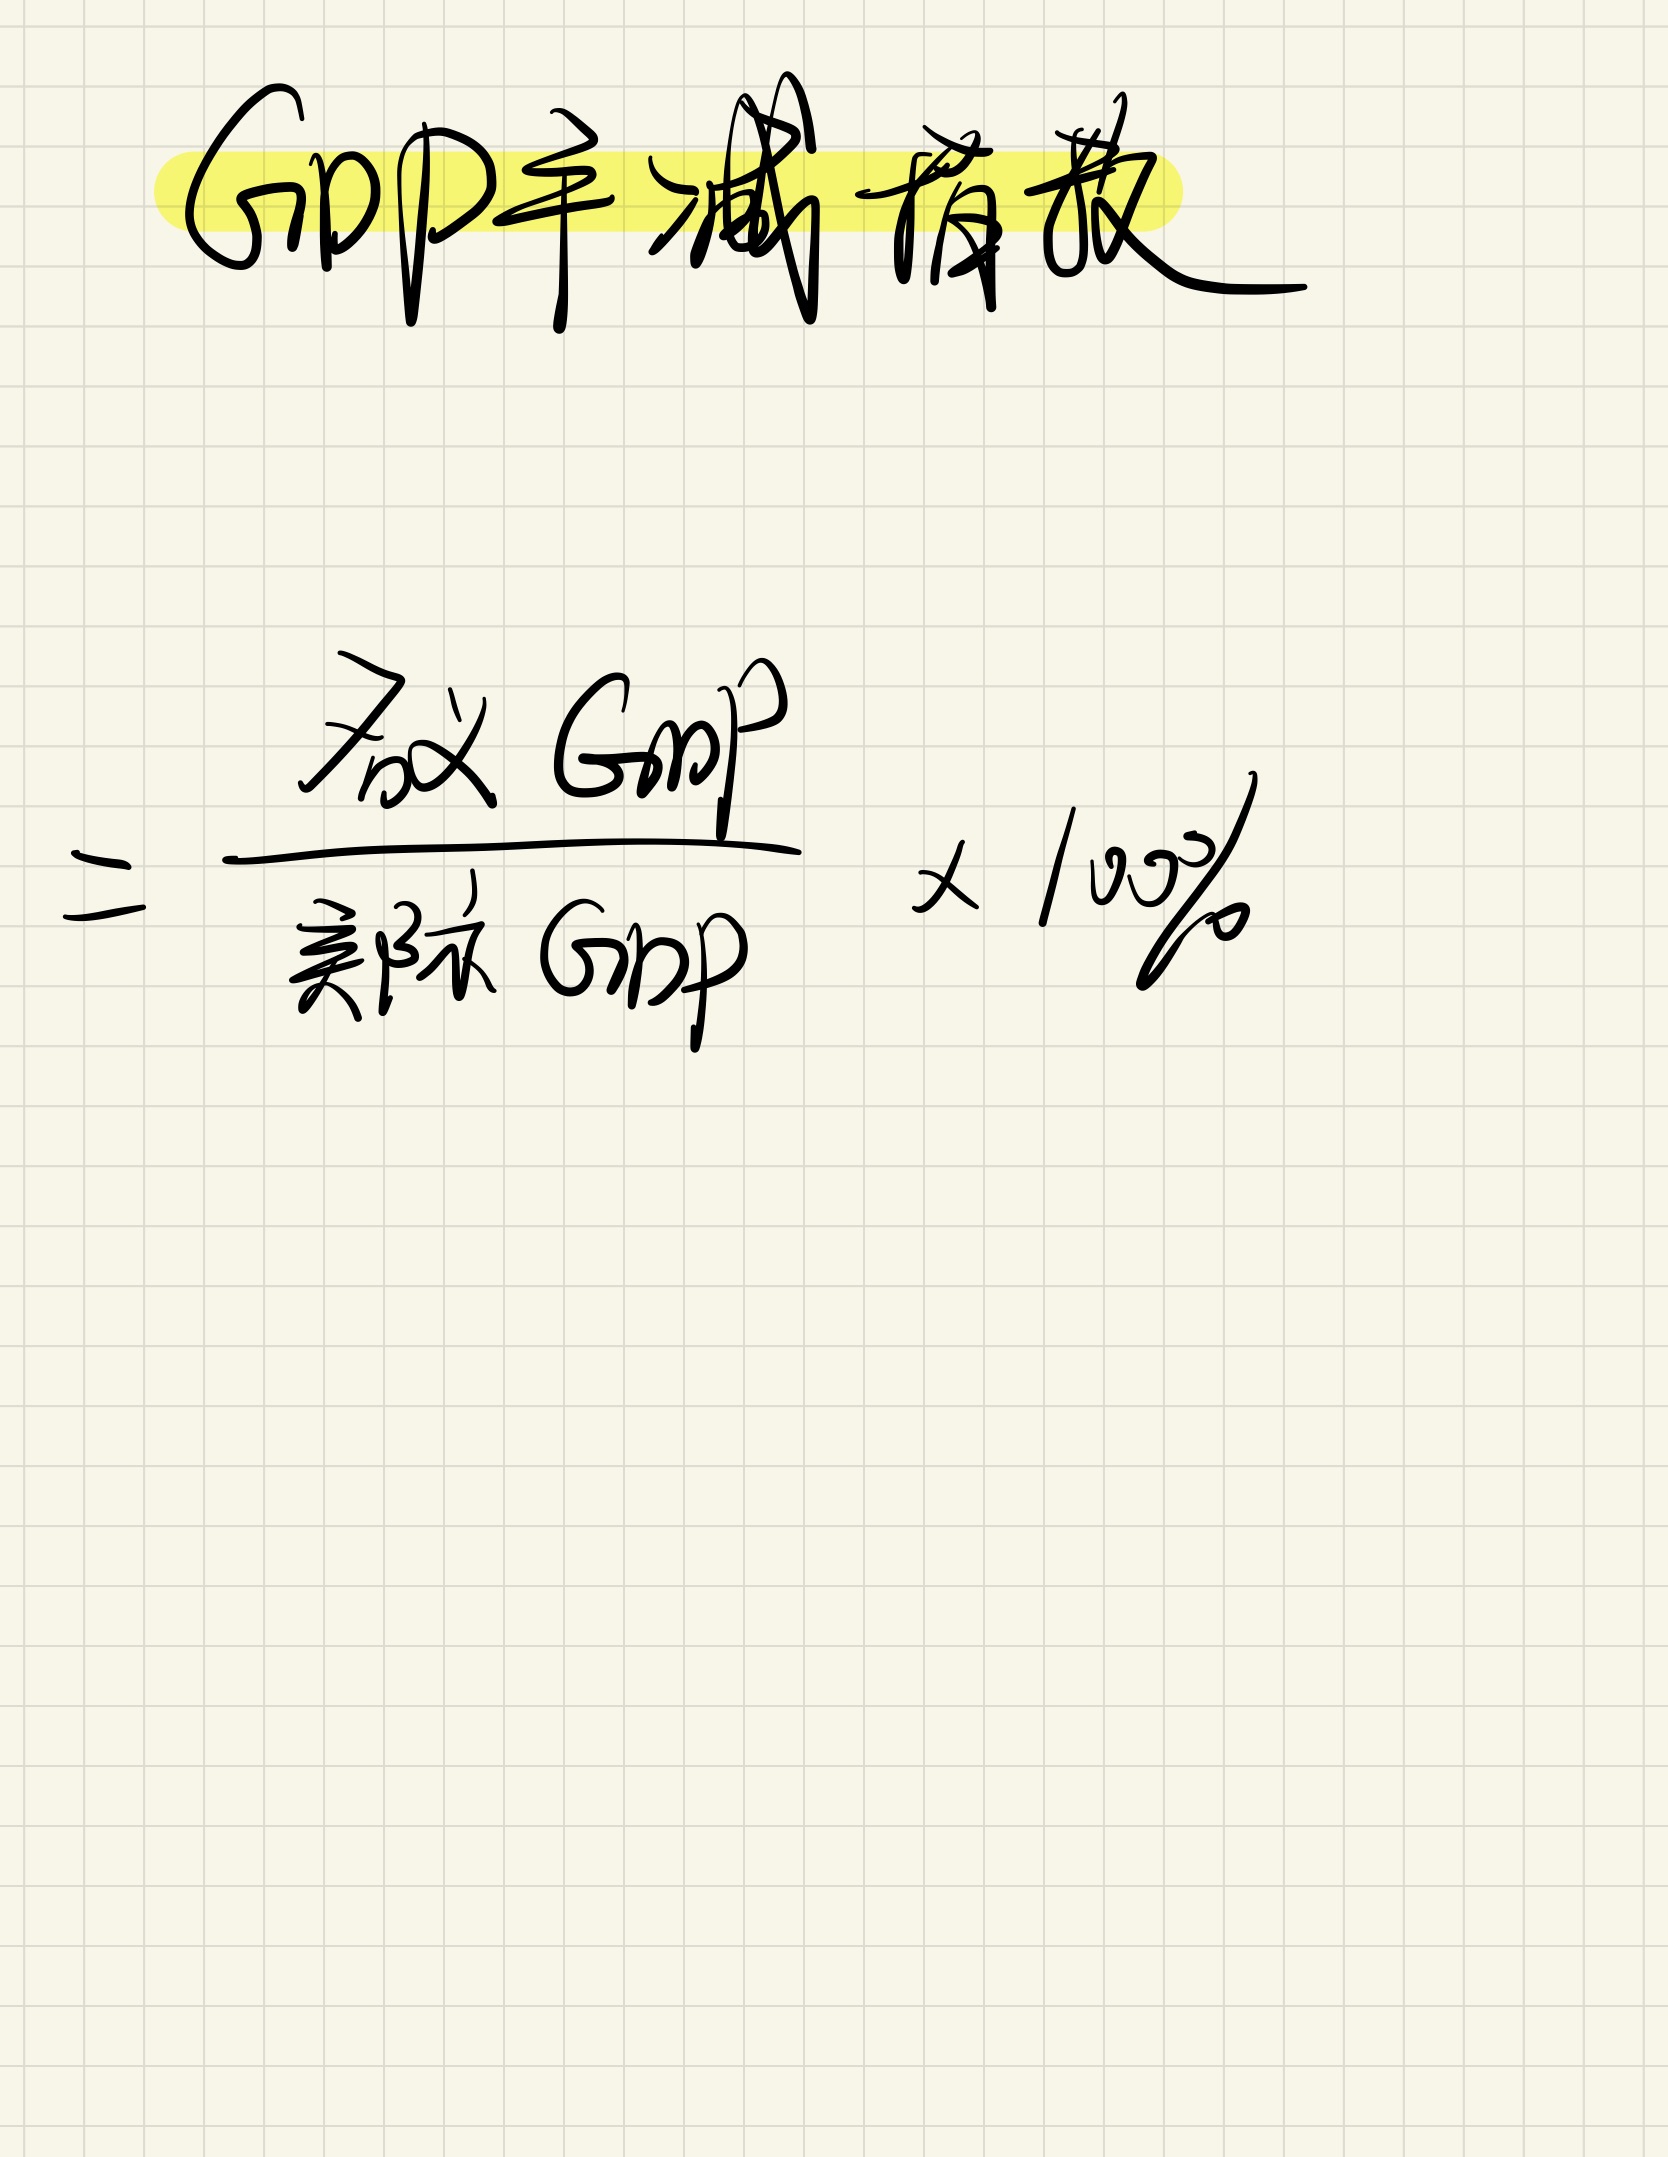 GDP平减指数
= 名义 GDP / 实际 GDP × 100%